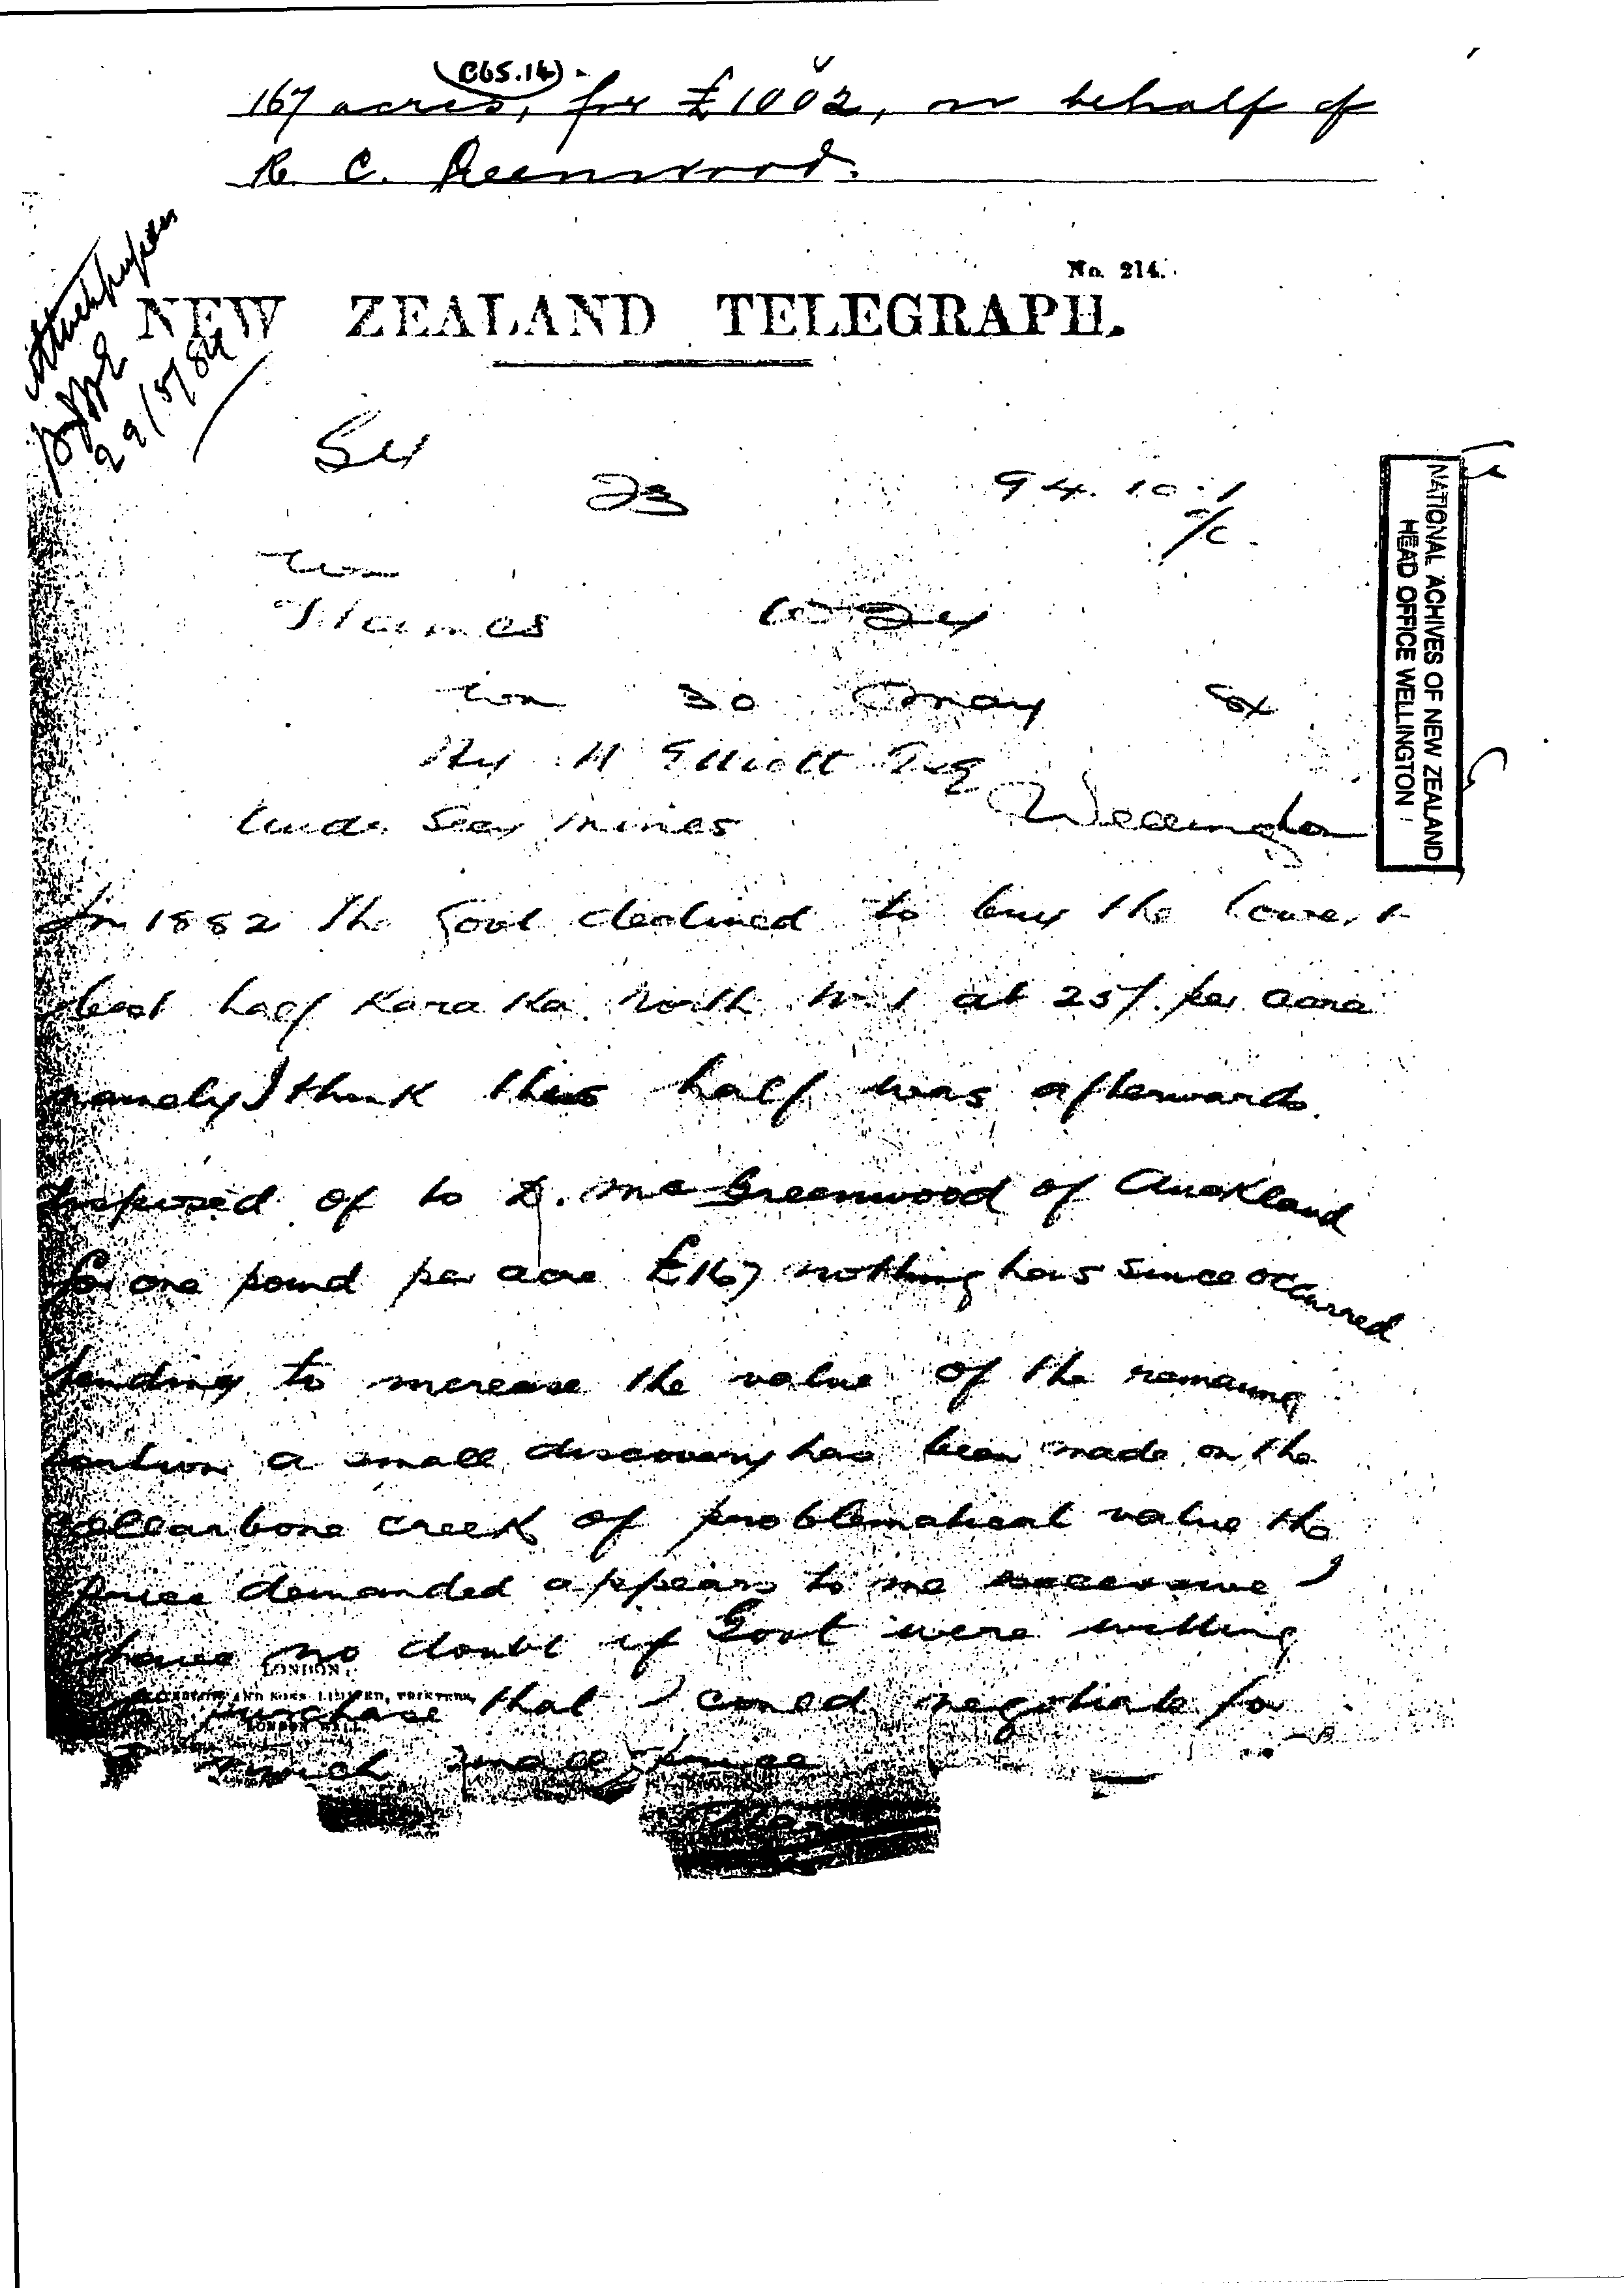 (C65.14)
167 acres, for £1002, on behalf of
R. C. Greenwood.
No. 214.
NEW ZEALAND TELEGRAPH.
29/5/84
23 94. 10.1
Thames
30 May 84
Hy H Elliott Esq
Under Secy Mines Wellington
NATIONAL ACHIVES OF NEW ZEALAND
HEAD OFFICE WELLINGTON
In 1882 the Govt declined to buy the lower &
best half Karaka North No 1 at 25/. per acre
namely I think this half was afterwards
disposed of to Greenwood of Auckland
for one pound per acre £167 nothing has since occurred
tending to increase the value of the remaining
portion a small discovery has been made on the
Collarbone creek of problematical value the
price demanded appears to me excessive I
have no doubt if Govt were willing
LONDON:
AND SONS, LIMITED, PRINTERS,
LONDON WALL.
to purchase that I could negotiate for
much smaller price